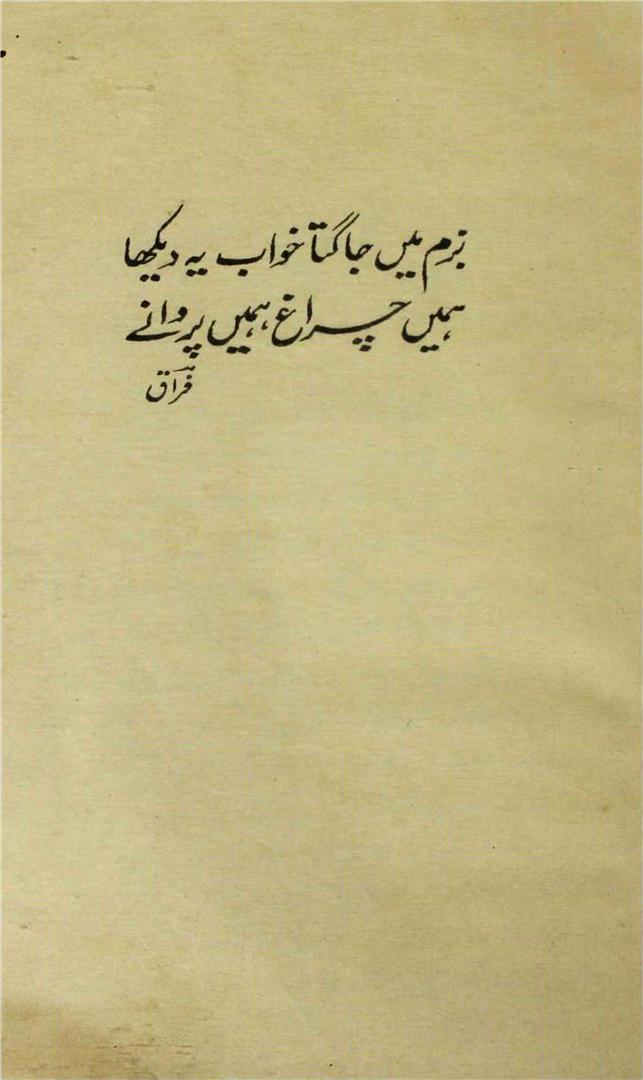 بزم میں جاگتا خواب یہ دیکھا
ہمیں چراغ، ہمیں پروانے
فراق